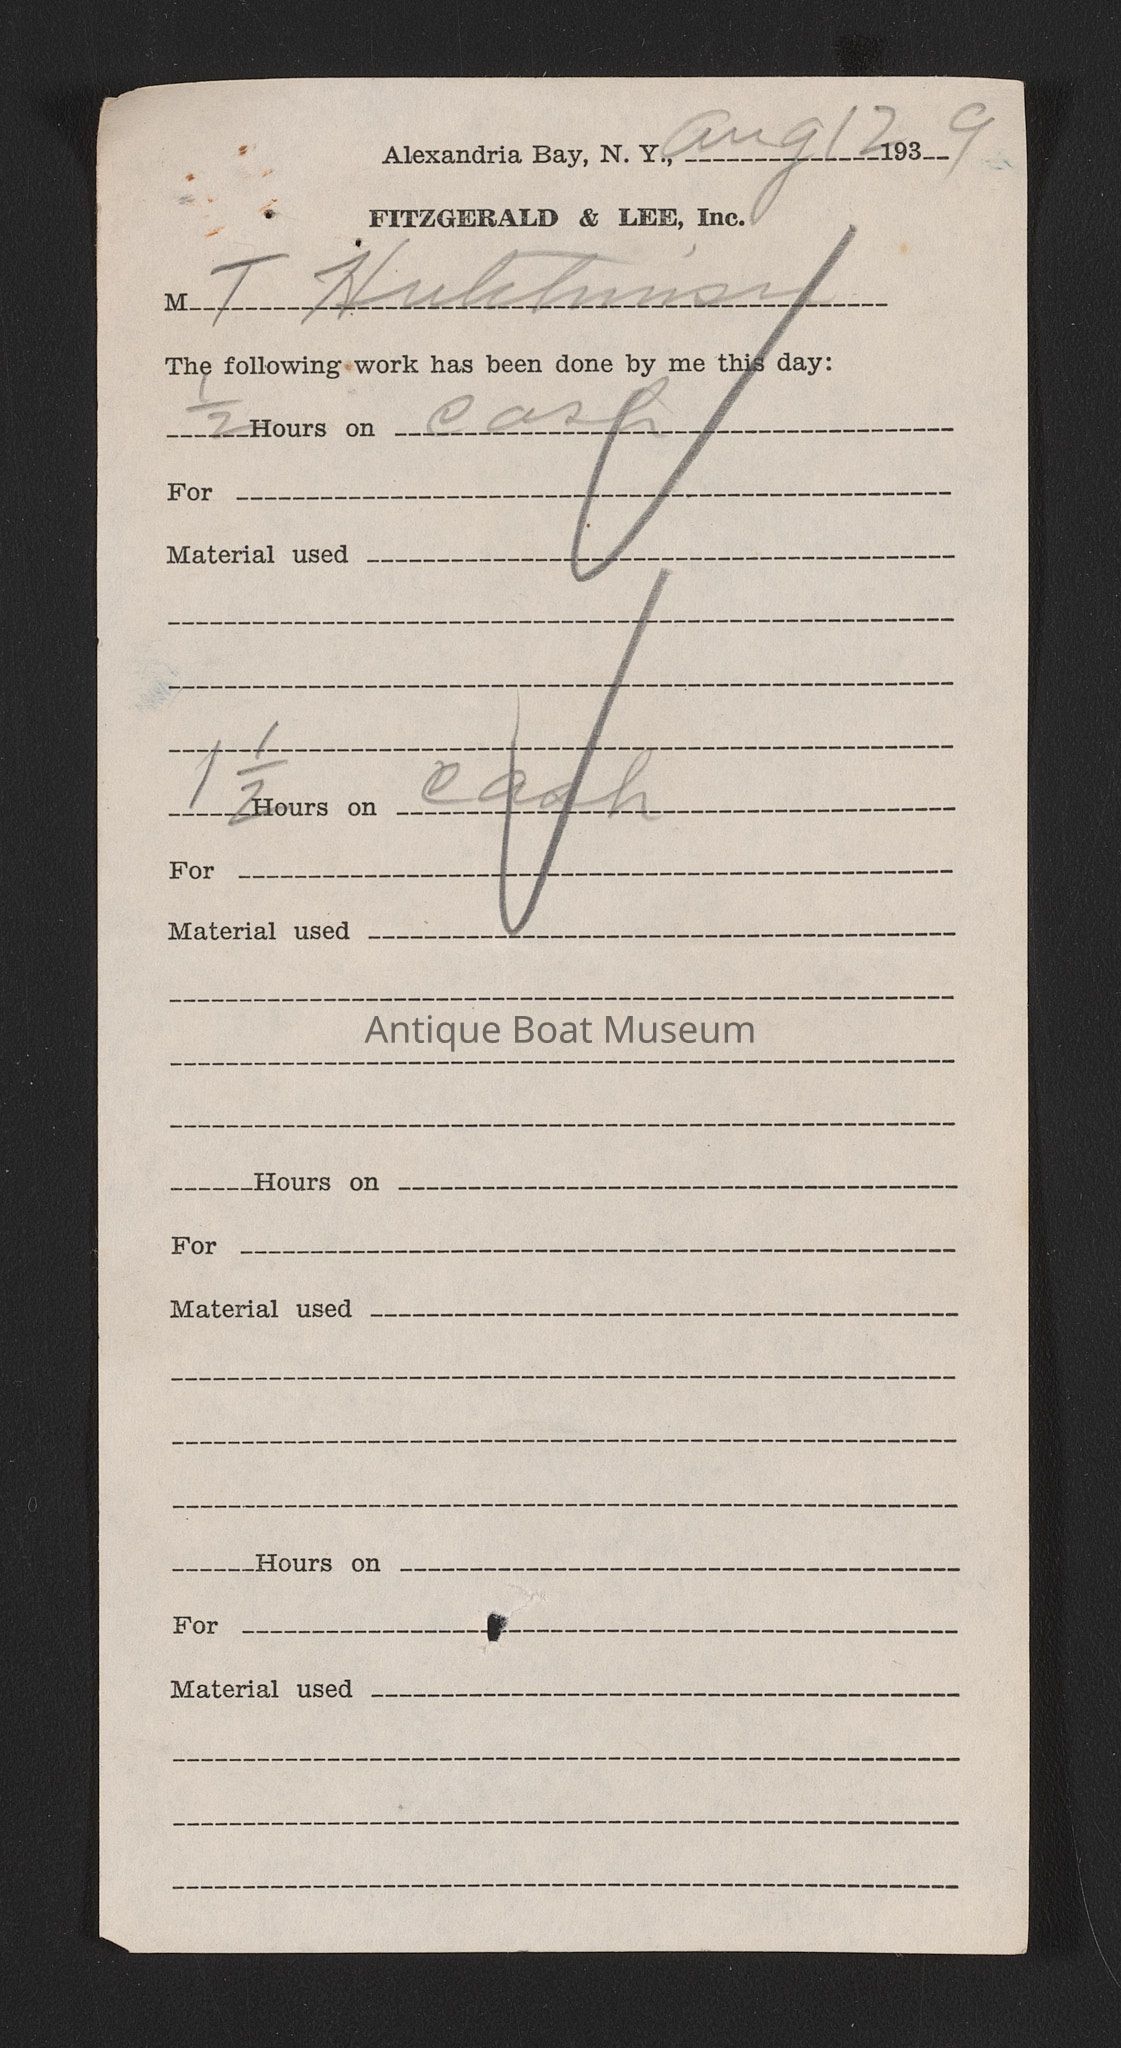 Alexandria Bay, N. Y., Aug 12 1939
FITZGERALD & LEE, Inc.
M T Hutchinson
The following work has been done by me this day:
1/2 Hours on cash
For
Material used
1 1/2 Hours on cash
For
Material used
Antique Boat Museum
Hours on
For
Material used
Hours on
For
Material used